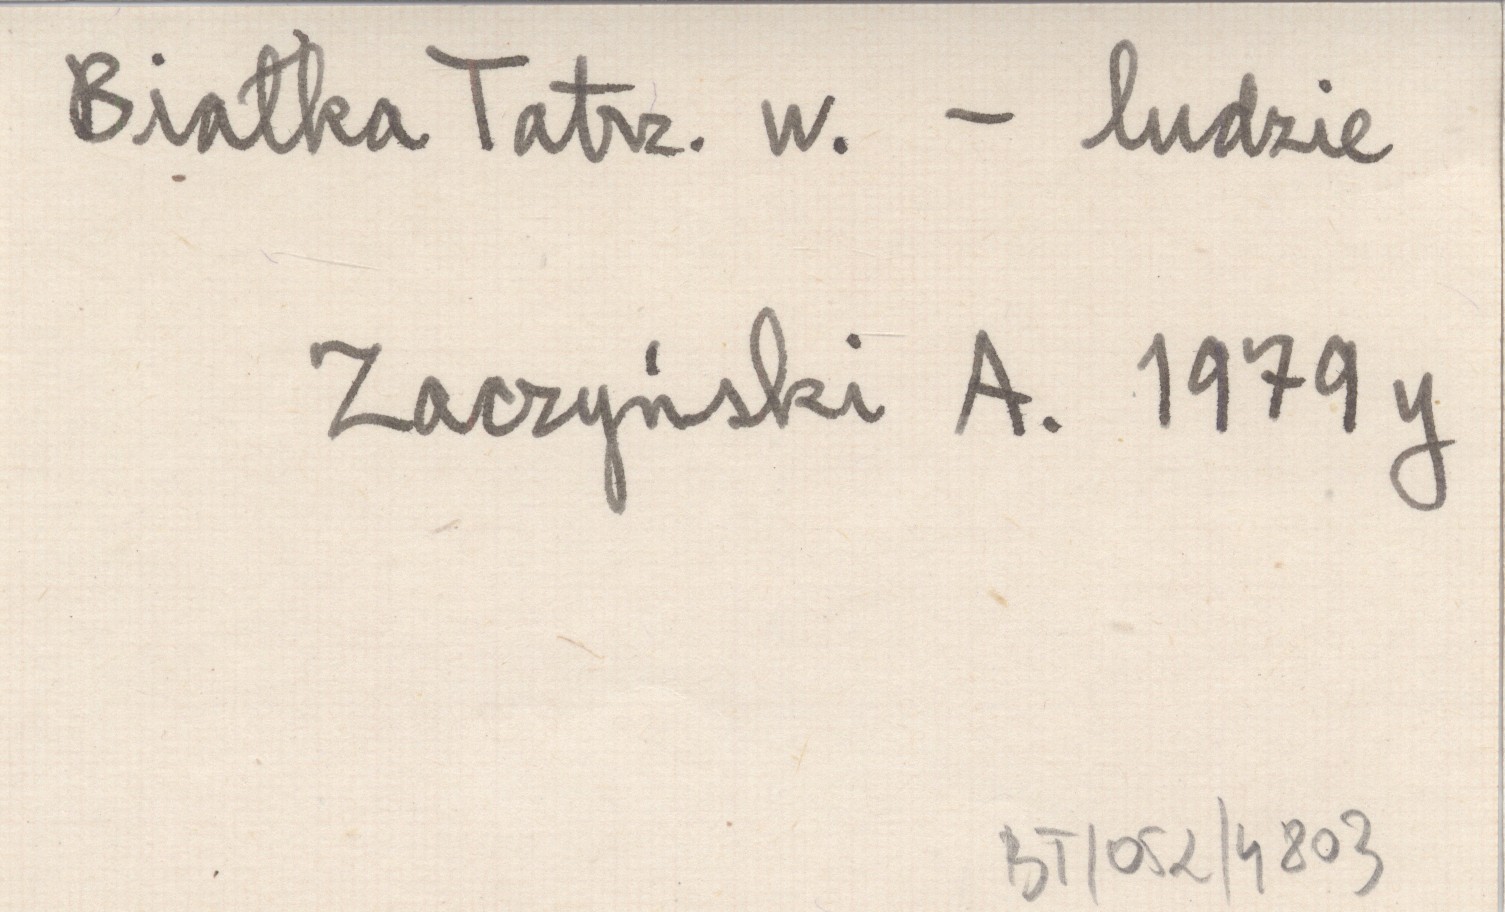 Białka Tatrz. w. - ludzie
Zaczyński A. 1979 y
BT/052/4803